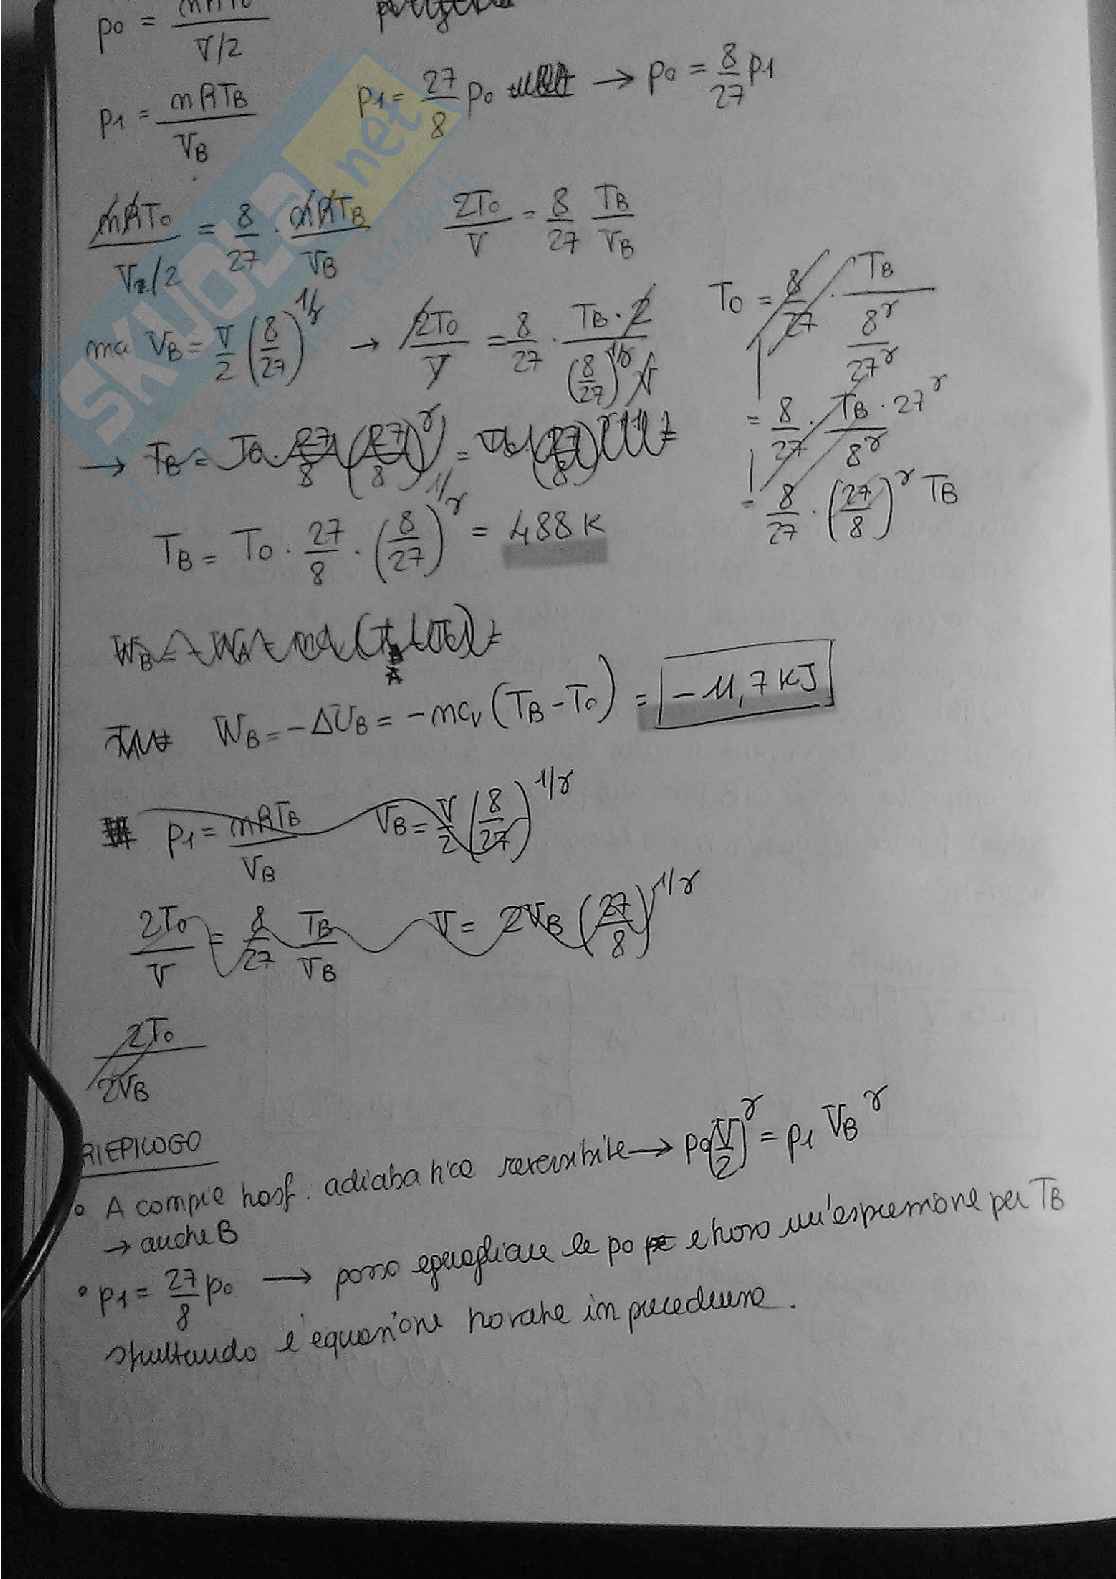 p0 = mRT0 / V/2
p1 = mRTB / VB   p1 = 27/8 p0 → p0 = 8/27 p1
SKUOLA.net
mRT0 / V/2 = 8/27 · mRTB / VB   2T0 / V = 8/27 TB / VB
ma VB = V/2 (8/27)^1/γ → 2T0 / V = 8/27 · TB · 2 / (8/27)^1/γ V
T0 = 8/27 · TB / 8^γ / 27^γ
= 8/27 · TB · 27^γ / 8^γ
= 8/27 · (27/8)^γ TB
→ TB = T0 27/8 (27/8)^γ =
TB = T0 · 27/8 · (8/27)^1/γ = 488 K
WB = -ΔUB = -mcv (TB - T0) = -11,7 KJ
p1 = mRTB / VB   VB = V/2 (8/27)^1/γ
2T0 / V = 8/27 TB / VB   V = 2VB (27/8)^1/γ
2T0 / 2VB
RIEPILOGO
• A compie trasf. adiabatica reversibile → p0 (V/2)^γ = p1 VB^γ
→ anche B
• p1 = 27/8 p0 → posso eguagliare le p0 e trovo un'espressione per TB
sfruttando l'equazione trovate in precedenza.